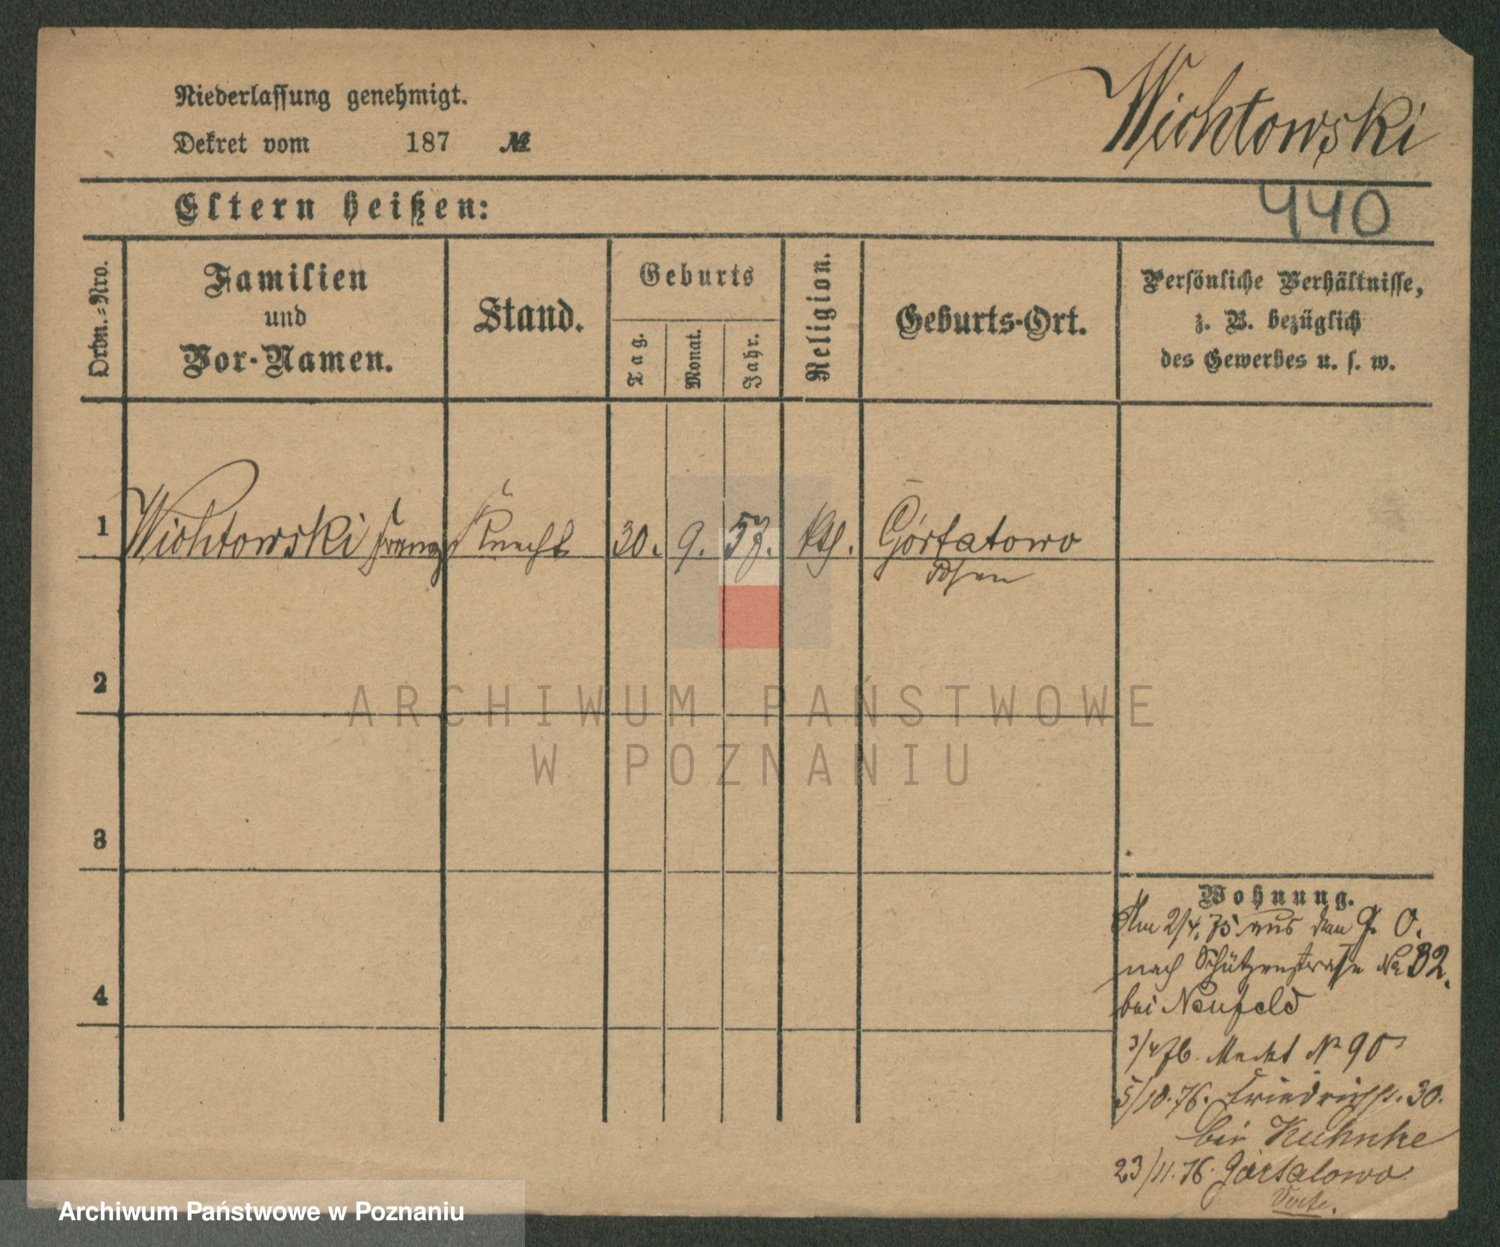 Niederlassung genehmigt.
Wichtowski
Dekret vom 187 №
Eltern heißen:
440
Ordn.-Nro.
Familien und Vor-Namen.
Stand.
Geburts
Tag.
Monat.
Jahr.
Religion.
Geburts-Ort.
Persönliche Verhältnisse,
z. B. bezüglich
des Gewerbes u. s. w.
1 Wichtowski Franz Knecht 30. 9. 57. kth. Górtatowo
Posen
2
ARCHIWUM PAŃSTWOWE
W POZNANIU
3
4
Wohnung.
Am 2/4. 75 aus dem O.
nach Schützenstraße No 32.
bei Neufeld
3/4 76. Markt No 90
5/10. 76. Friedrichs. 30.
bei Kuhnke
23/11. 76. Górtatowo
Archiwum Państwowe w Poznaniu